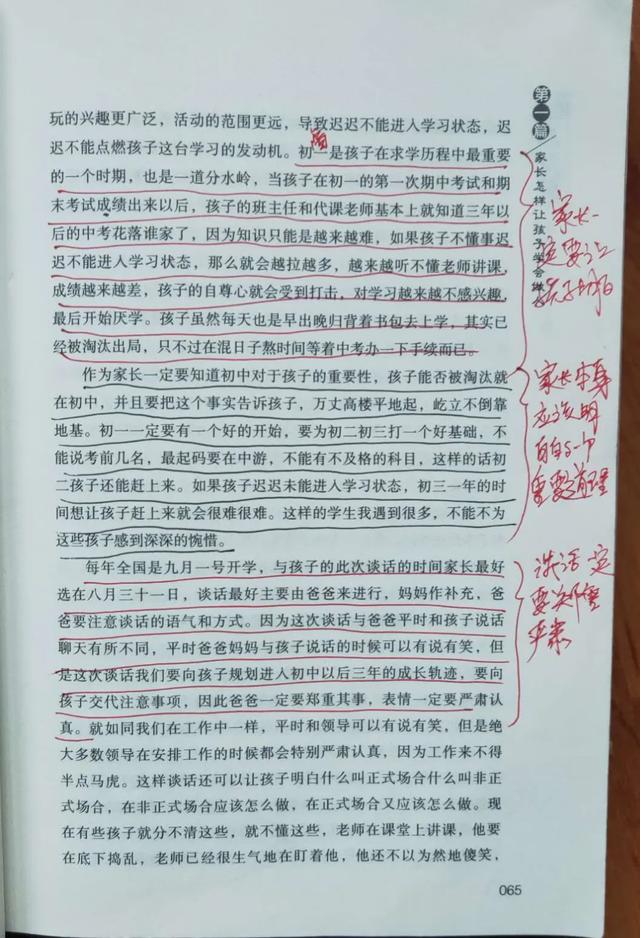 玩的兴趣更广泛，活动的范围更远，导致迟迟不能进入学习状态，迟
迟不能点燃孩子这台学习的发动机。初一是孩子在求学历程中最重要
的一个时期，也是一道分水岭，当孩子在初一的第一次期中考试和期
末考试成绩出来以后，孩子的班主任和代课老师基本上就知道三年以
后的中考花落谁家了，因为知识只能是越来越难，如果孩子不懂事迟
迟不能进入学习状态，那么就会越拉越多，越来越听不懂老师讲课，
成绩越来越差，孩子的自尊心就会受到打击，对学习越来越不感兴趣，
最后开始厌学。孩子虽然每天也是早出晚归背着书包去上学，其实已
经被淘汰出局，只不过在混日子熬时间等着中考办一下手续而已。
作为家长一定要知道初中对于孩子的重要性，孩子能否被淘汰就
在初中，并且要把这个事实告诉孩子，万丈高楼平地起，屹立不倒靠
地基。初一一定要有一个好的开始，要为初二初三打一个好基础，不
能说考前几名，最起码要在中游，不能有不及格的科目，这样的话初
二孩子还能赶上来。如果孩子迟迟未能进入学习状态，初三一年的时
间想让孩子赶上来就会很难很难。这样的学生我遇到很多，不能不为
这些孩子感到深深的惋惜。
每年全国是九月一号开学，与孩子的此次谈话的时间家长最好
选在八月三十一日，谈话最好主要由爸爸来进行，妈妈作补充，爸
爸要注意谈话的语气和方式。因为这次谈话与爸爸平时和孩子说话
聊天有所不同，平时爸爸妈妈与孩子说话的时候可以有说有笑，但
是这次谈话我们要向孩子规划进入初中以后三年的成长轨迹，要向
孩子交代注意事项，因此爸爸一定要郑重其事，表情一定要严肃认
真。就如同我们在工作中一样，平时和领导可以有说有笑，但是绝
大多数领导在安排工作的时候都会特别严肃认真，因为工作来不得
半点马虎。这样谈话还可以让孩子明白什么叫正式场合什么叫非正
式场合，在非正式场合应该怎么做，在正式场合又应该怎么做。现
在有些孩子就分不清这些，就不懂这些，老师在课堂上讲课，他要
在底下捣乱，老师已经很生气地在盯着他，他还不以为然地傻笑，
065
第一篇
家长怎样让孩子学会做
家长一
定要让
孩子
家长本身
应该明
白这个
重要道理
谈话一定
要郑重
严肃